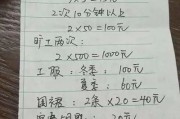 2次10分钟以上
2×50=100元
旷工两次:
2×500=1000元
工服: 冬季: 100元
夏季: 60元
调休: 2条×20=40元
20元